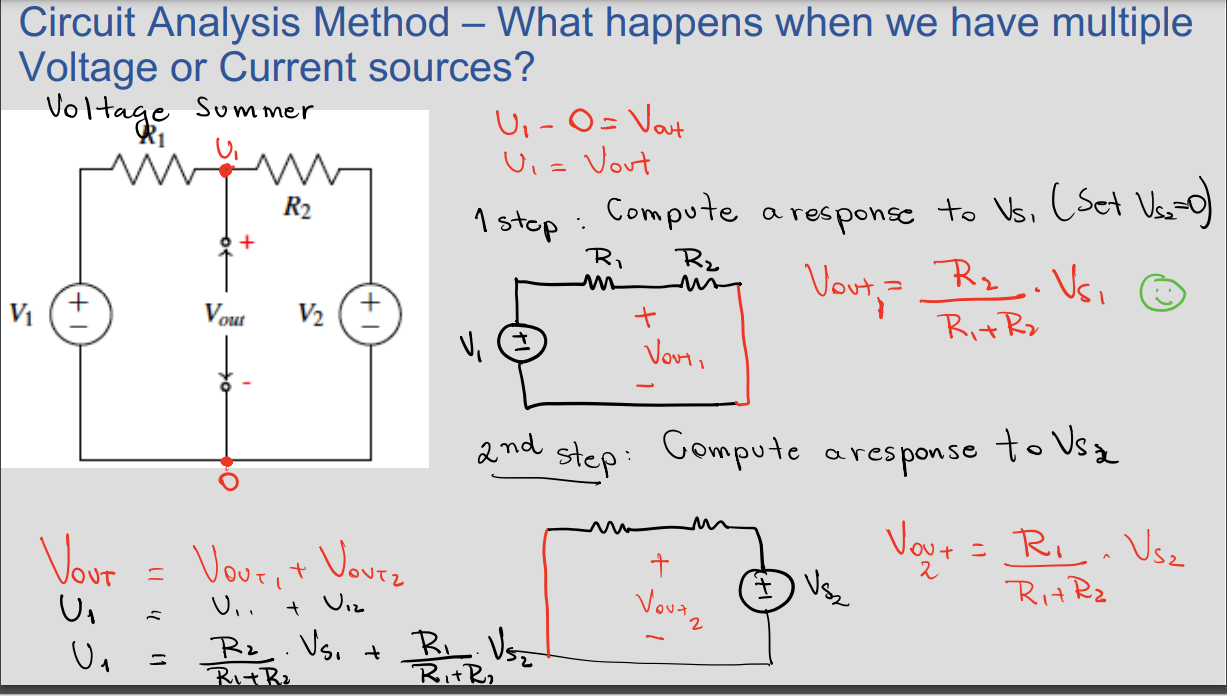 Circuit Analysis Method – What happens when we have multiple
Voltage or Current sources?
Voltage Summer
R₁
U₁
R₂
+
V₁
+
−
Vout
V₂
+
−
-
O
U₁ - O = Vout
U₁ = Vout
1 step : Compute a response to Vs₁ (Set Vs₂=0)
R₁ R₂
V₁
+
−
+
Vout₁
−
Vout₁ = R₂ / R₁+R₂ · Vs₁
2nd step: Compute a response to Vs₂
+
Vout₂
−
+
−
Vs₂
Vout₂ = R₁ / R₁+R₂ · Vs₂
VOUT = VOUT₁ + VOUT₂
U₁ = U₁₁ + U₁₂
U₁ = R₂ / R₁+R₂ · Vs₁ + R₁ / R₁+R₂ · Vs₂